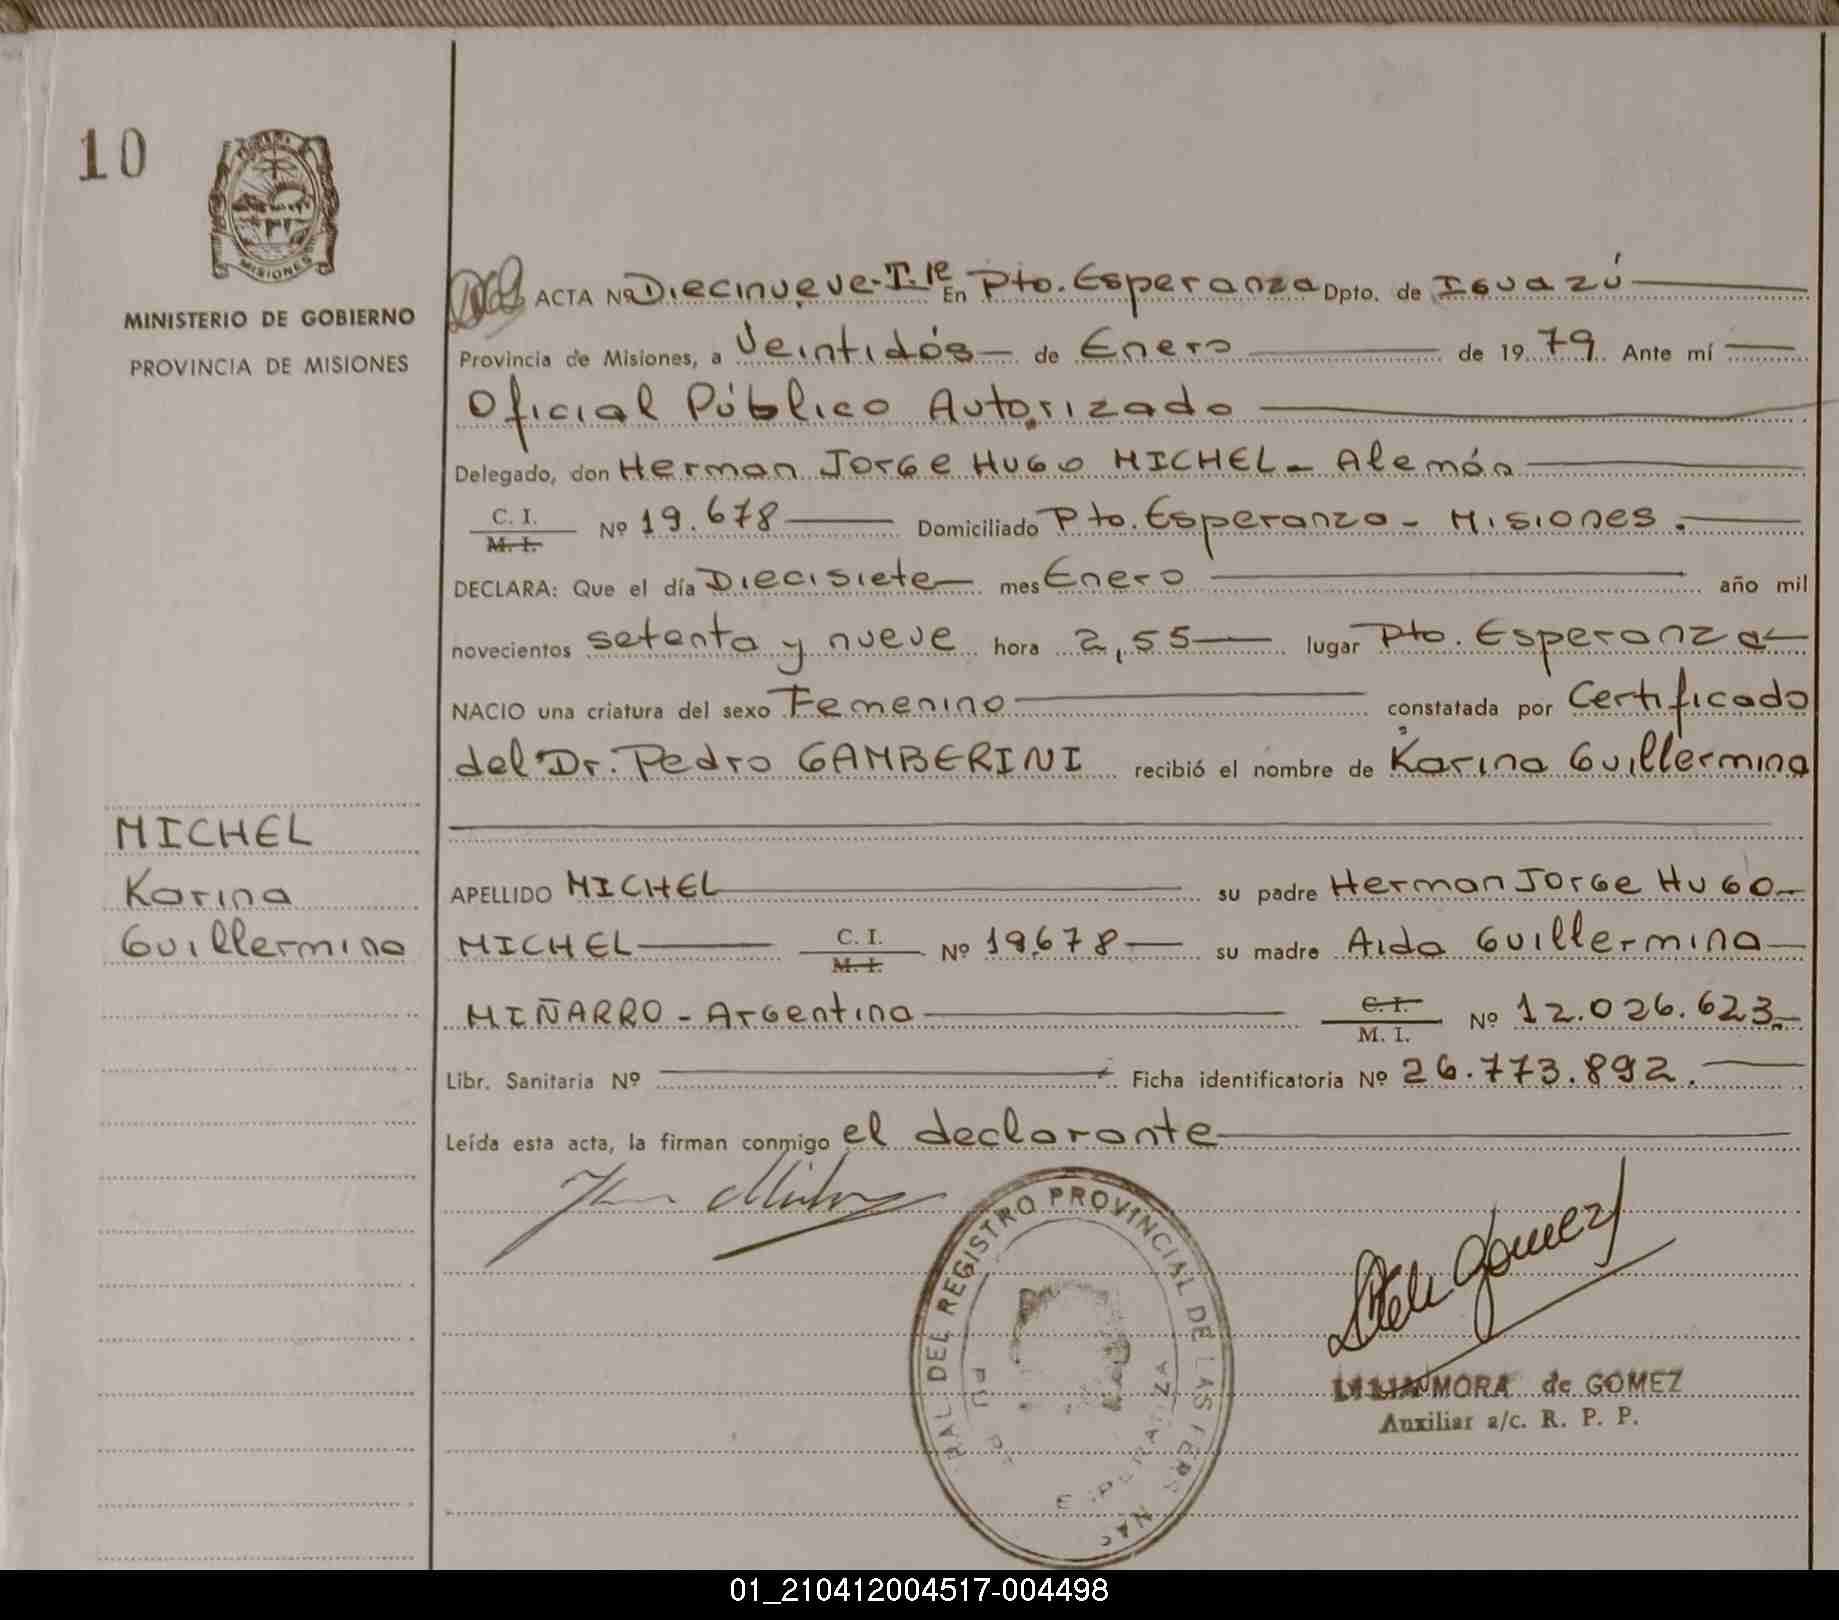 10
MISIONES
MINISTERIO DE GOBIERNO
PROVINCIA DE MISIONES
ACTA Nº Diecinueve-T.Iº En Pto. Esperanza Dpto. de Iguazú
Provincia de Misiones, a Veintidós de Enero de 1979 Ante mí
Oficial Público Autorizado
Delegado, don Herman Jorge Hugo MICHEL - Alemán
C. I. M. I. Nº 19.678 Domiciliado Pto. Esperanza - Misiones.
DECLARA: Que el día Diecisiete mes Enero año mil
novecientos setenta y nueve hora 2,55 lugar Pto. Esperanza
NACIO una criatura del sexo Femenino constatada por Certificado
del Dr. Pedro GAMBERINI recibió el nombre de Karina Guillermina
MICHEL
Karina
Guillermina
APELLIDO MICHEL su padre Herman Jorge Hugo
MICHEL C. I. M. I. Nº 19678 su madre Aida Guillermina
MIÑARRO - Argentina C. I. M. I. Nº 12.026.623
Libr. Sanitaria Nº Ficha identificatoria Nº 26.773.892.
Leída esta acta, la firman conmigo el declarante
RAL DEL REGISTRO PROVINCIAL DE LAS
Gomez
MORA de GOMEZ
Auxiliar a/c. R. P. P.
01_210412004517-004498